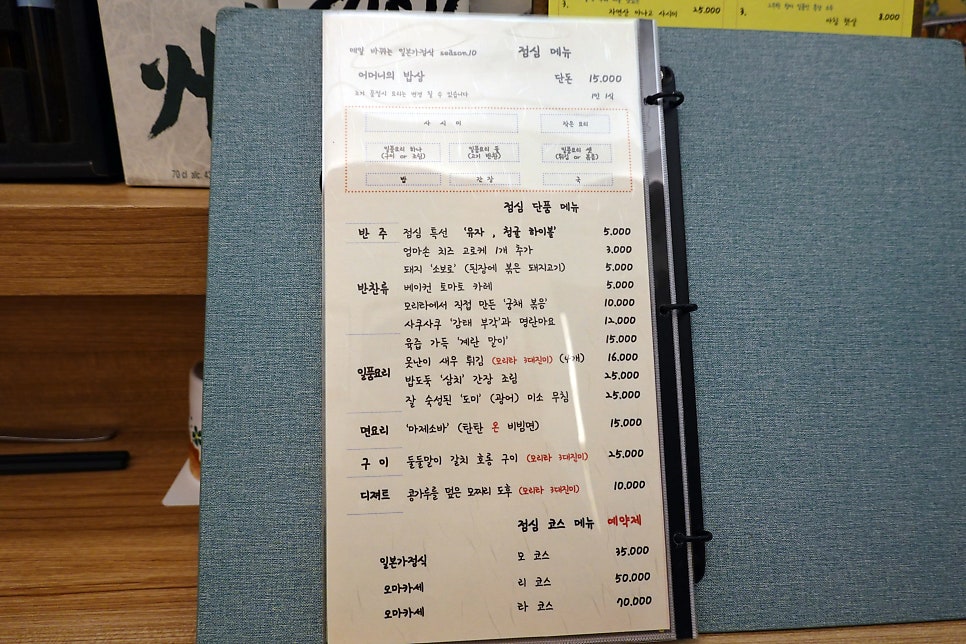 3. 자연산 아나고 사시미 25,000
3. 아침 햇살 8,000
70 cl alc. 4
매달 바뀌는 일본가정식 season.10 점심 메뉴
어머니의 밥상 단돈 15,000
고기 품절이 요리는 변경 될 수 있습니다 1인 1식
사 시 미 작은 요리
일품요리 하나 일품요리 둘 일품요리 셋
(구이 or 조림) (고기 반찬) (튀김 or 볶음)
밥 간 장 국
점심 단품 메뉴
반 주 점심 특선 '유자 , 청귤 하이볼' 5,000
엄마손 치즈 고로케 1개 추가 3,000
돼지 '소보로' (된장에 볶은 돼지고기) 5,000
반찬류 베이컨 토마토 카레 5,000
모리라에서 직접 만든 '궁채 볶음' 10,000
사쿠사쿠 '감태 부각'과 명란마요 12,000
육즙 가득 '계란 말이' 15,000
못난이 새우 튀김 (모리라 3대진미) (4개) 16,000
일품요리 밥도둑 '삼치' 간장 조림 25,000
잘 숙성된 '도미' (광어) 미소 무침 25,000
면요리 '마제소바' (탄탄 온 비빔면) 15,000
구 이 돌돌말이 갈치 호롱 구이 (모리라 3대진미) 25,000
디져트 콩가루를 덮은 모찌리 도후 (모리라 3대진미) 10,000
점심 코스 메뉴 예약제
일본가정식 모 코스 35,000
오마카세 리 코스 50,000
오마카세 라 코스 70,000